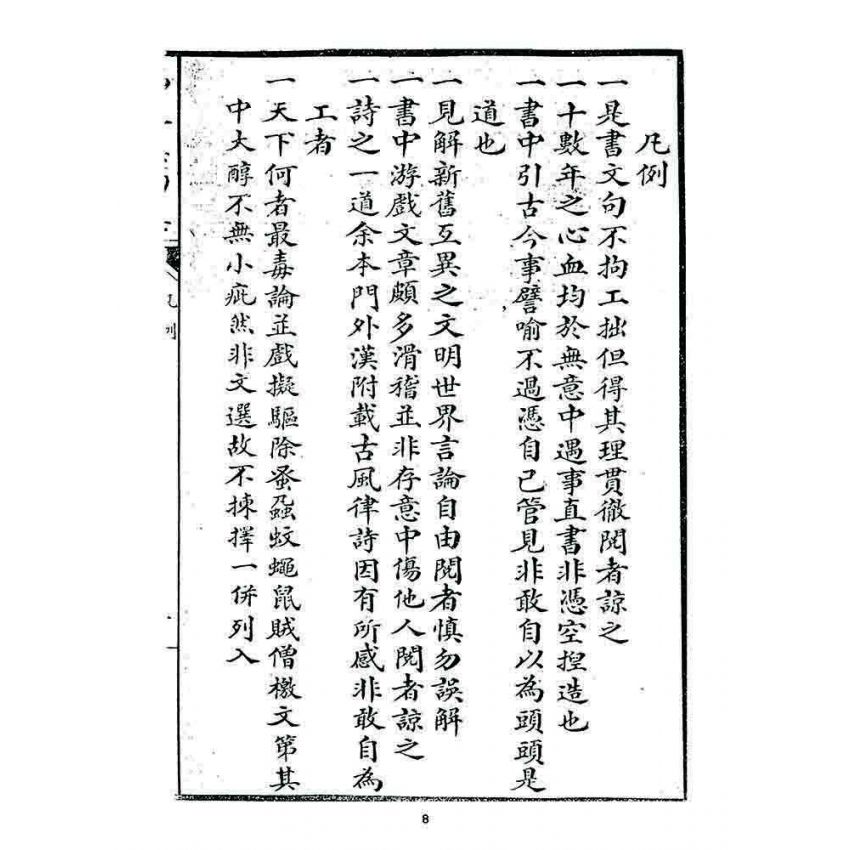 凡例
一是書文句不拘工拙但得其理貫徹閱者諒之
一十數年之心血均於無意中遇事直書非憑空揑造也
一書中引古今事譬喻不過憑自己管見非敢自以為頭頭是
道也
一見解新舊互異之文明世界言論自由閱者慎勿誤解
一書中游戲文章頗多滑稽並非存意中傷他人閱者諒之
一詩之一道余本門外漢附載古風律詩因有所感非敢自為
工者
一天下何者最毒論並戲擬驅除蚤蝨蚊蠅鼠賊僧檄文第其
中大醇不無小疵然非文選故不揀擇一併列入
凡例
8